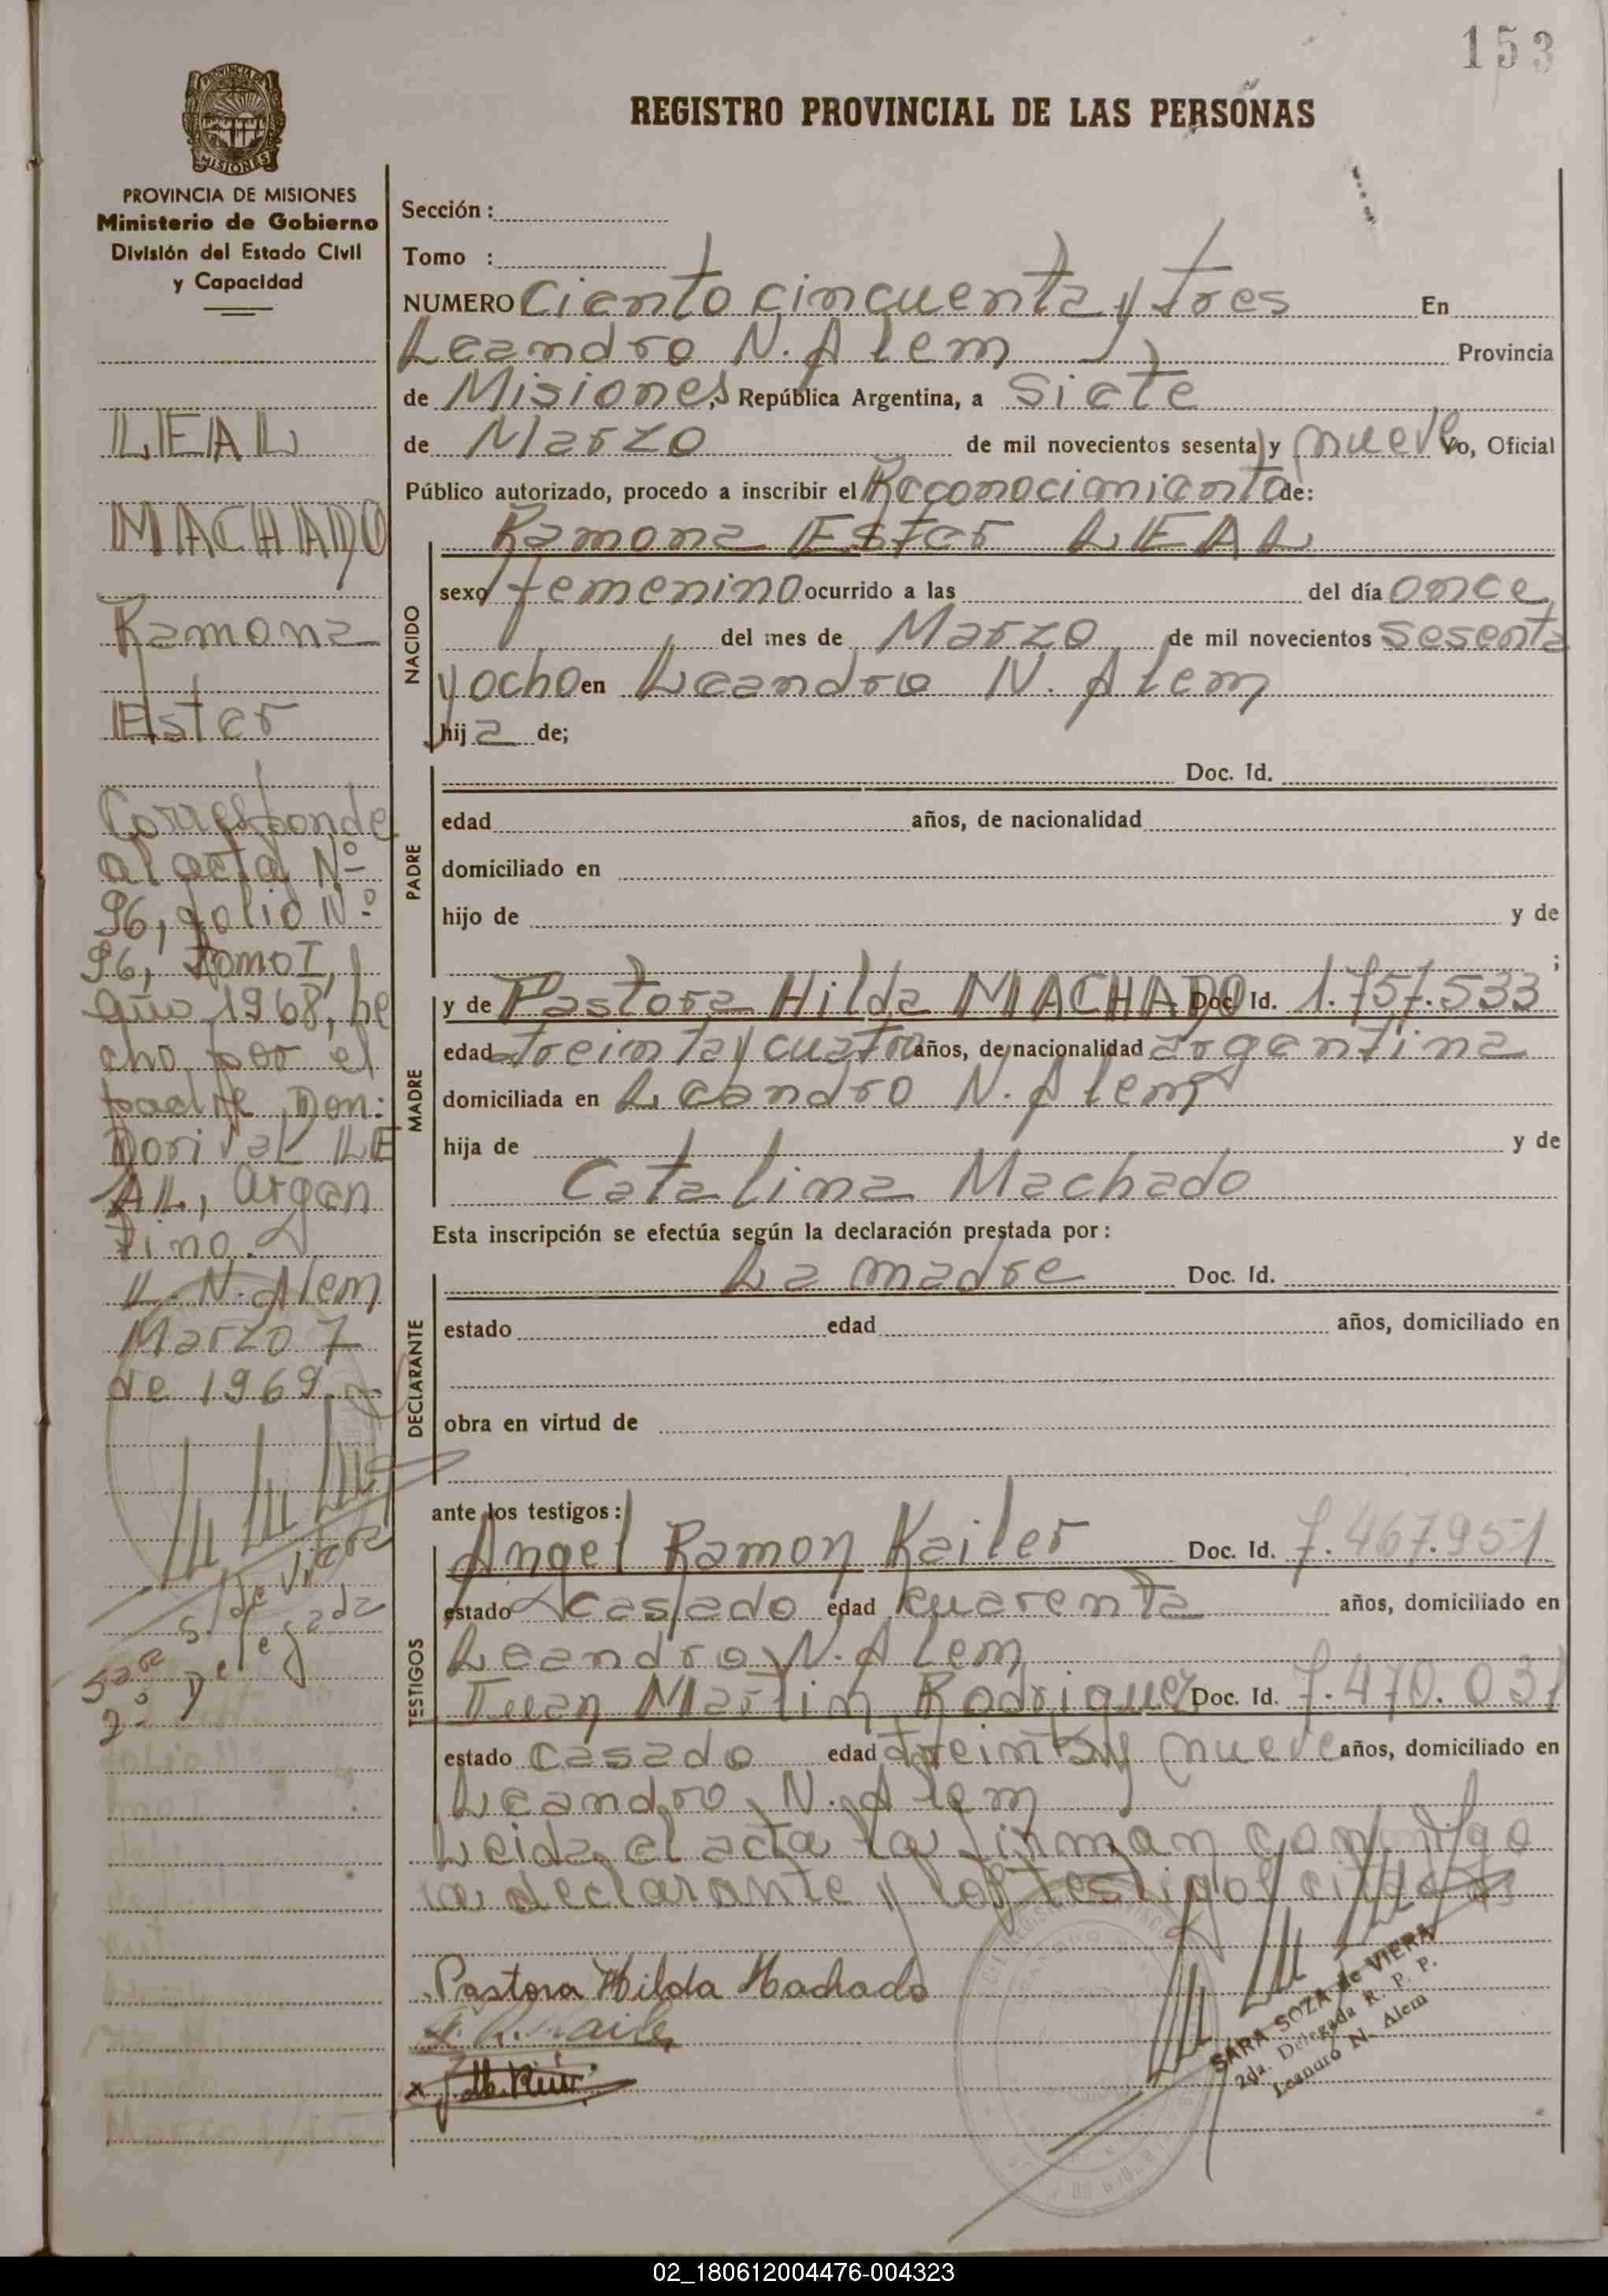 153
REGISTRO PROVINCIAL DE LAS PERSONAS
PROVINCIA DE
MISIONES
PROVINCIA DE MISIONES
Ministerio de Gobierno
División del Estado Civil
y Capacidad
LEAL
MACHADO
Ramona
Ester
Corresponde
al acta Nº
96, folio Nº
96, Tomo I,
año 1968, he
cho por el
padre Don:
Dorival LE
AL, argen
tino.
L. N. Alem
Marzo 7
de 1969
Sara S. de Viera
2º Delegada
Sección :
Tomo :
NUMERO Ciento cincuenta y tres En
Leandro N. Alem Provincia
de Misiones, República Argentina, a Siete
de Marzo de mil novecientos sesenta y nueve Yo, Oficial
Público autorizado, procedo a inscribir el Reconocimiento de:
NACIDO
Ramona Ester LEAL
sexo femenino ocurrido a las del día once
del mes de Marzo de mil novecientos sesenta
y ocho en Leandro N. Alem
hija de;
PADRE
Doc. Id.
edad años, de nacionalidad
domiciliado en
hijo de y de
;
MADRE
y de Pastora Hilda MACHADO Doc. Id. 1.757.533
edad treinta y cuatro años, de nacionalidad argentina
domiciliada en Leandro N. Alem
hija de y de
Catalina Machado
Esta inscripción se efectúa según la declaración prestada por :
DECLARANTE
La madre Doc. Id.
estado edad años, domiciliado en
obra en virtud de
ante los testigos :
TESTIGOS
Angel Ramon Kailer Doc. Id. 7.467.951
estado casado edad cuarenta años, domiciliado en
Leandro N. Alem
Juan Martin Rodriguez Doc. Id. 7.470.031
estado casado edad treinta y nueve años, domiciliado en
Leandro N. Alem
Leida el acta la firman conmigo
la declarante y los testigos citados
Pastora Hilda Machado
SARA SOZA de VIERA
2da. Delegada R. P. P.
Leandro N. Alem
02_180612004476-004323